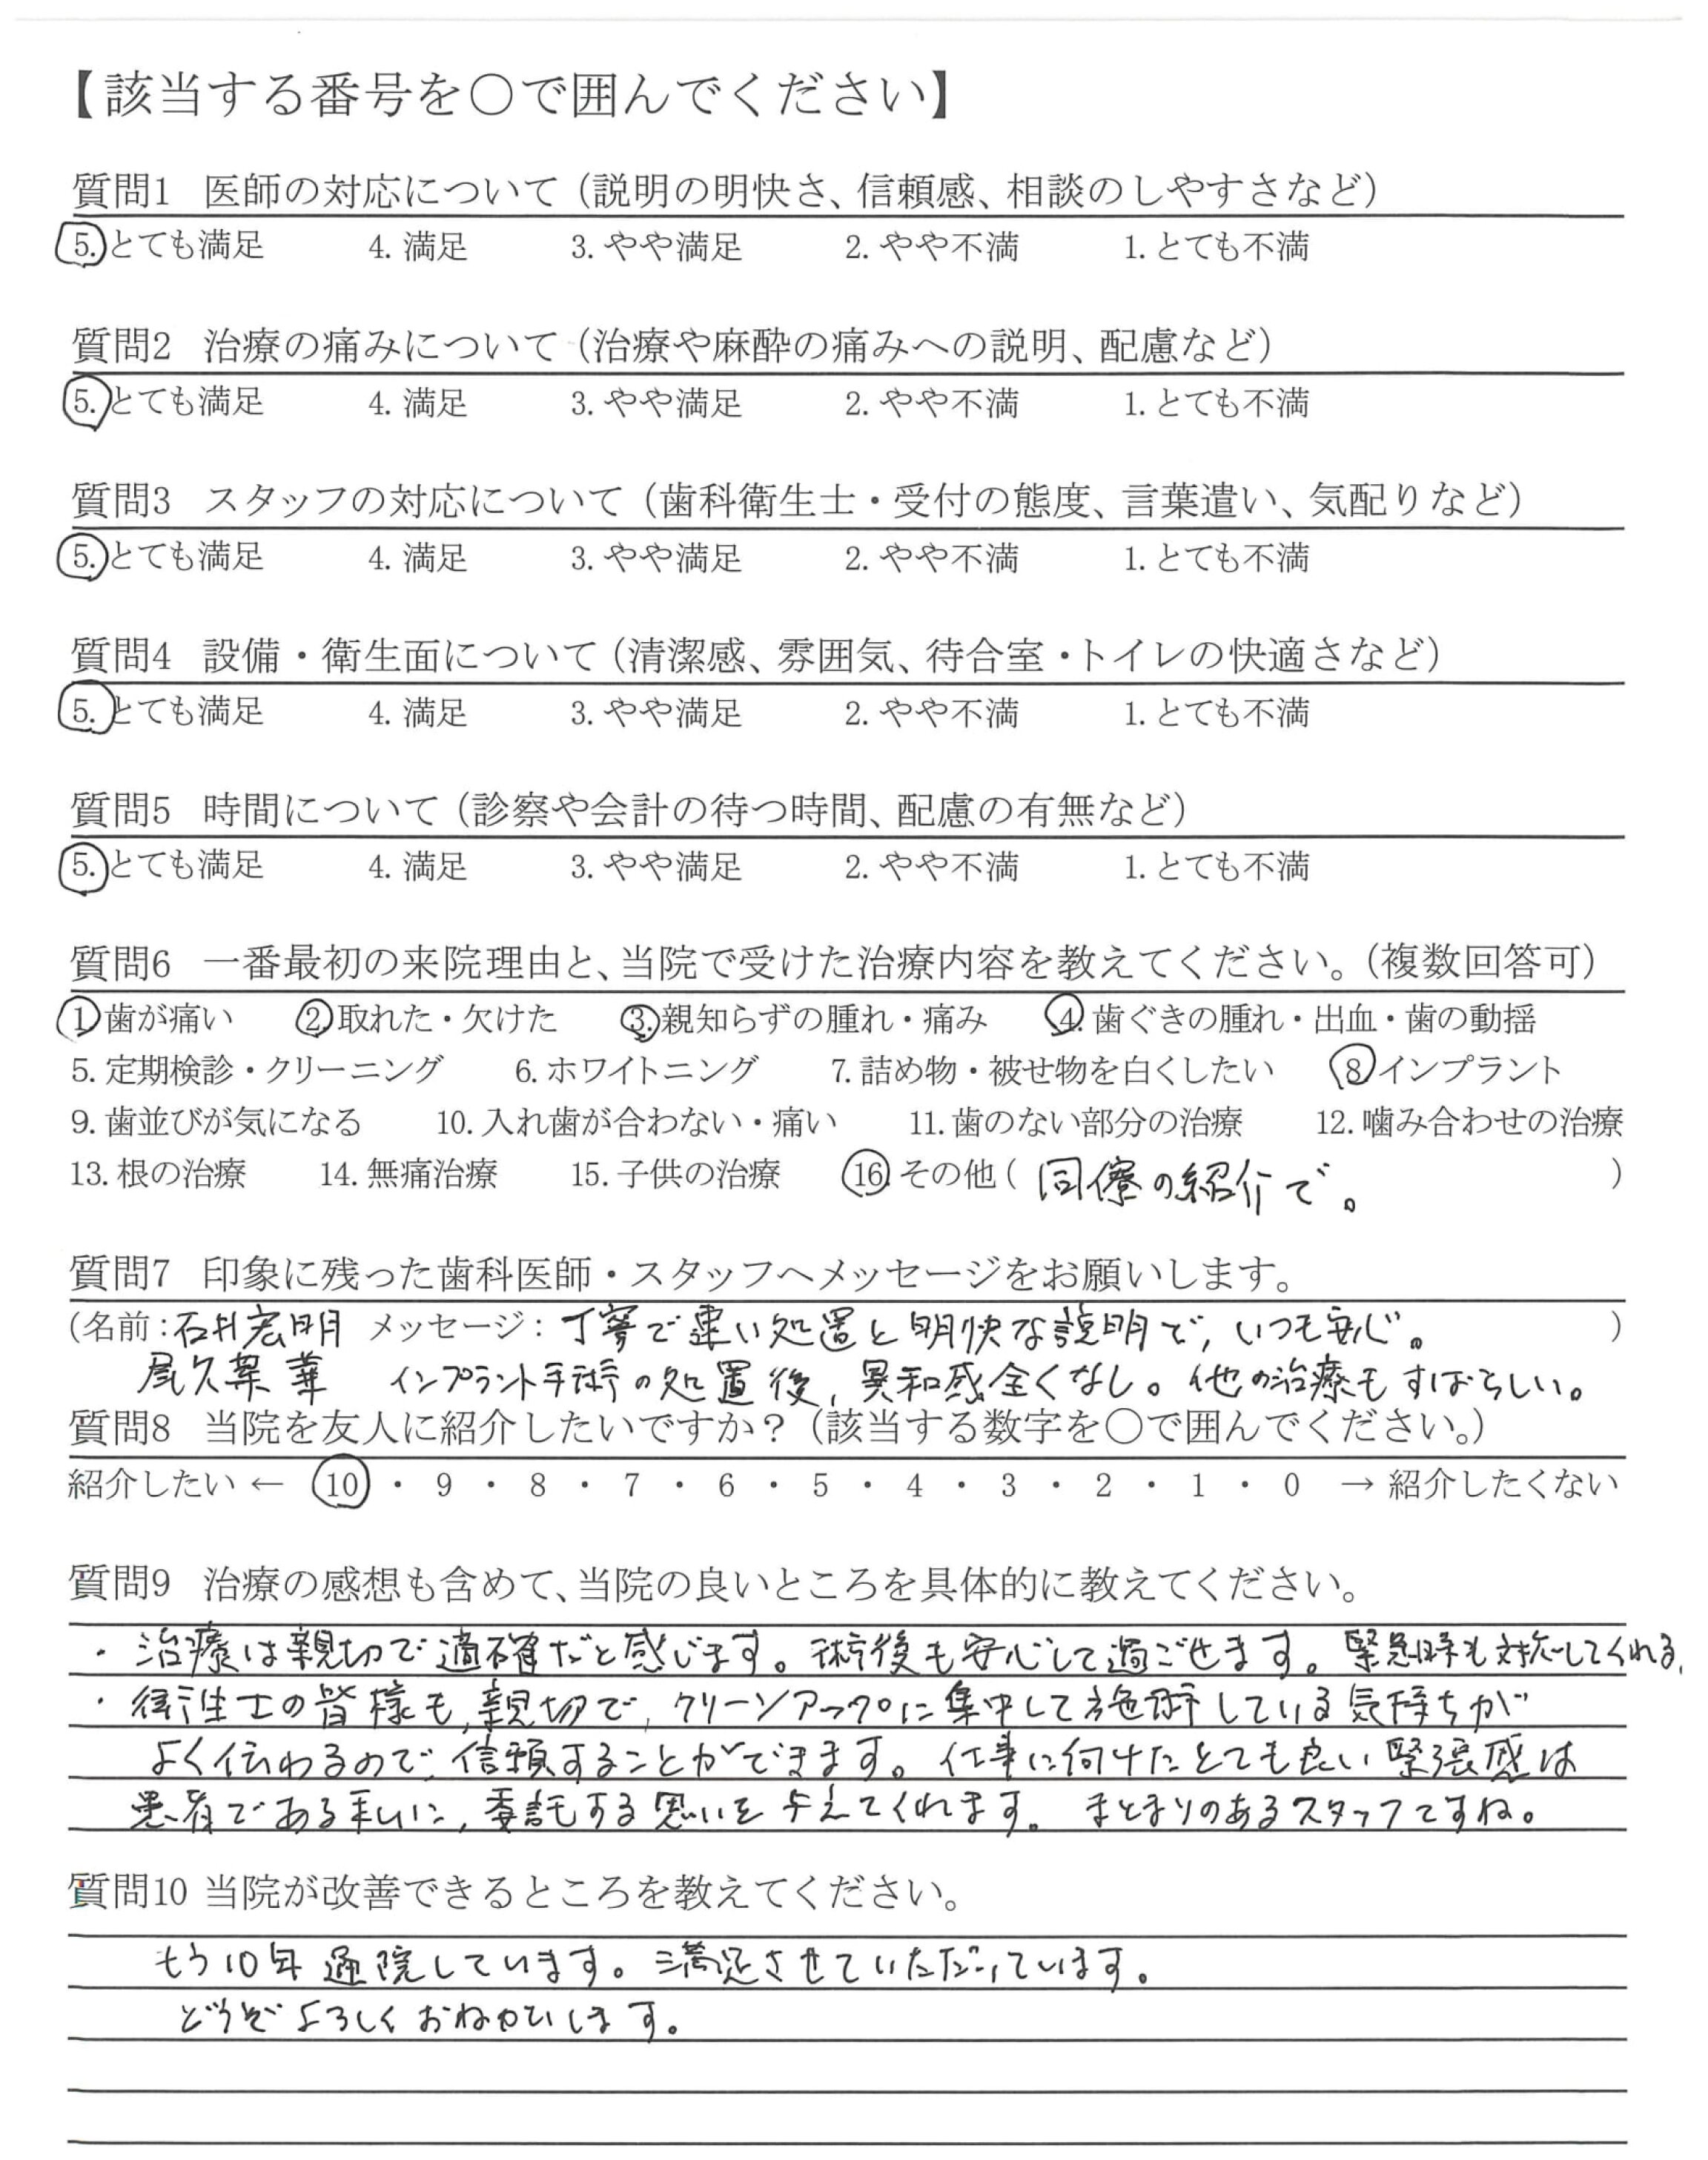 【該当する番号を○で囲んでください】
質問1 医師の対応について（説明の明快さ、信頼感、相談のしやすさなど）
5. とても満足 4. 満足 3. やや満足 2. やや不満 1. とても不満
質問2 治療の痛みについて（治療や麻酔の痛みへの説明、配慮など）
5. とても満足 4. 満足 3. やや満足 2. やや不満 1. とても不満
質問3 スタッフの対応について（歯科衛生士・受付の態度、言葉遣い、気配りなど）
5. とても満足 4. 満足 3. やや満足 2. やや不満 1. とても不満
質問4 設備・衛生面について（清潔感、雰囲気、待合室・トイレの快適さなど）
5. とても満足 4. 満足 3. やや満足 2. やや不満 1. とても不満
質問5 時間について（診察や会計の待つ時間、配慮の有無など）
5. とても満足 4. 満足 3. やや満足 2. やや不満 1. とても不満
質問6 一番最初の来院理由と、当院で受けた治療内容を教えてください。（複数回答可）
1 歯が痛い 2. 取れた・欠けた 3. 親知らずの腫れ・痛み 4. 歯ぐきの腫れ・出血・歯の動揺
5. 定期検診・クリーニング 6. ホワイトニング 7. 詰め物・被せ物を白くしたい 8 インプラント
9. 歯並びが気になる 10. 入れ歯が合わない・痛い 11. 歯のない部分の治療 12. 噛み合わせの治療
13. 根の治療 14. 無痛治療 15. 子供の治療 16 その他（ 同僚の紹介で。 ）
質問7 印象に残った歯科医師・スタッフへメッセージをお願いします。
（名前：石井宏明 メッセージ：丁寧で速い処置と明快な説明で，いつも安心。 ）
尾久 華 インプラント手術の処置後，異和感全くなし。他の治療もすばらしい。
質問8 当院を友人に紹介したいですか？（該当する数字を○で囲んでください。）
紹介したい ← 10 ・ 9 ・ 8 ・ 7 ・ 6 ・ 5 ・ 4 ・ 3 ・ 2 ・ 1 ・ 0 → 紹介したくない
質問9 治療の感想も含めて、当院の良いところを具体的に教えてください。
・治療は親切で適確だと感じます。術後も安心して過ごせます。緊急時も対応してくれる。
・衛生士の皆様も，親切で，クリーンアップに集中して施術している気持ちが
よく伝わるので，信頼することができます。仕事に向けたとても良い緊張感は
患者である私に，委託する思いを与えてくれます。まとまりのあるスタッフですね。
質問10 当院が改善できるところを教えてください。
もう10年通院しています。満足させていただいています。
どうぞよろしくおねがいします。